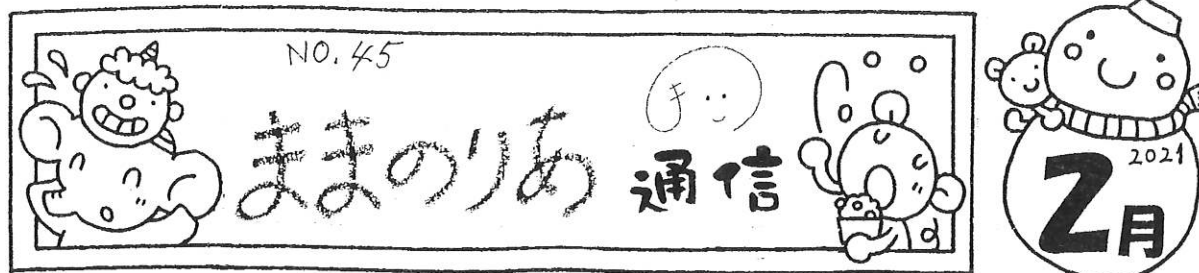 NO.45
ままのりあ 通信
2021
2月